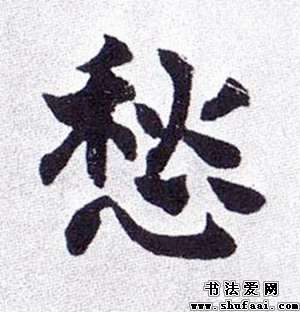 愁
书法爱网
www.shufaai.com